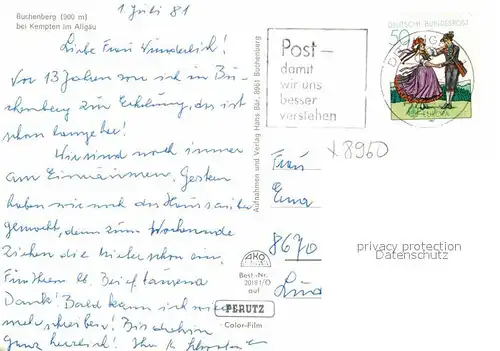 Buchenberg (900 m)
bei Kempten im Allgäu
1. Juli 81
Liebe Frau Wunderlich!
Vor 13 Jahren war ich in Bu-
chenberg zur Erholung, das ist
schon lange her!
Wir sind noch immer
am Einräumen. Gestern
haben wir noch die Hausarbeit
gemacht, denn zum Wochenende
ziehen die Mieter schon ein.
Für Ihren lb. Brief tausend
Dank! Bald kann ich wieder
mehr schreiben! Bis dahin
ganz herzlich! Ihre
Aufnahmen und Verlag Hans Bär, 8961 Buchenberg
Post –
damit
wir uns
besser
verstehen
DEUTSCHE BUNDESPOST
50
x8950
Frau
Erna
8670
privacy protection
Datenschutz
AKO
Best.-Nr.
20181/O
auf
PERUTZ
Color-Film